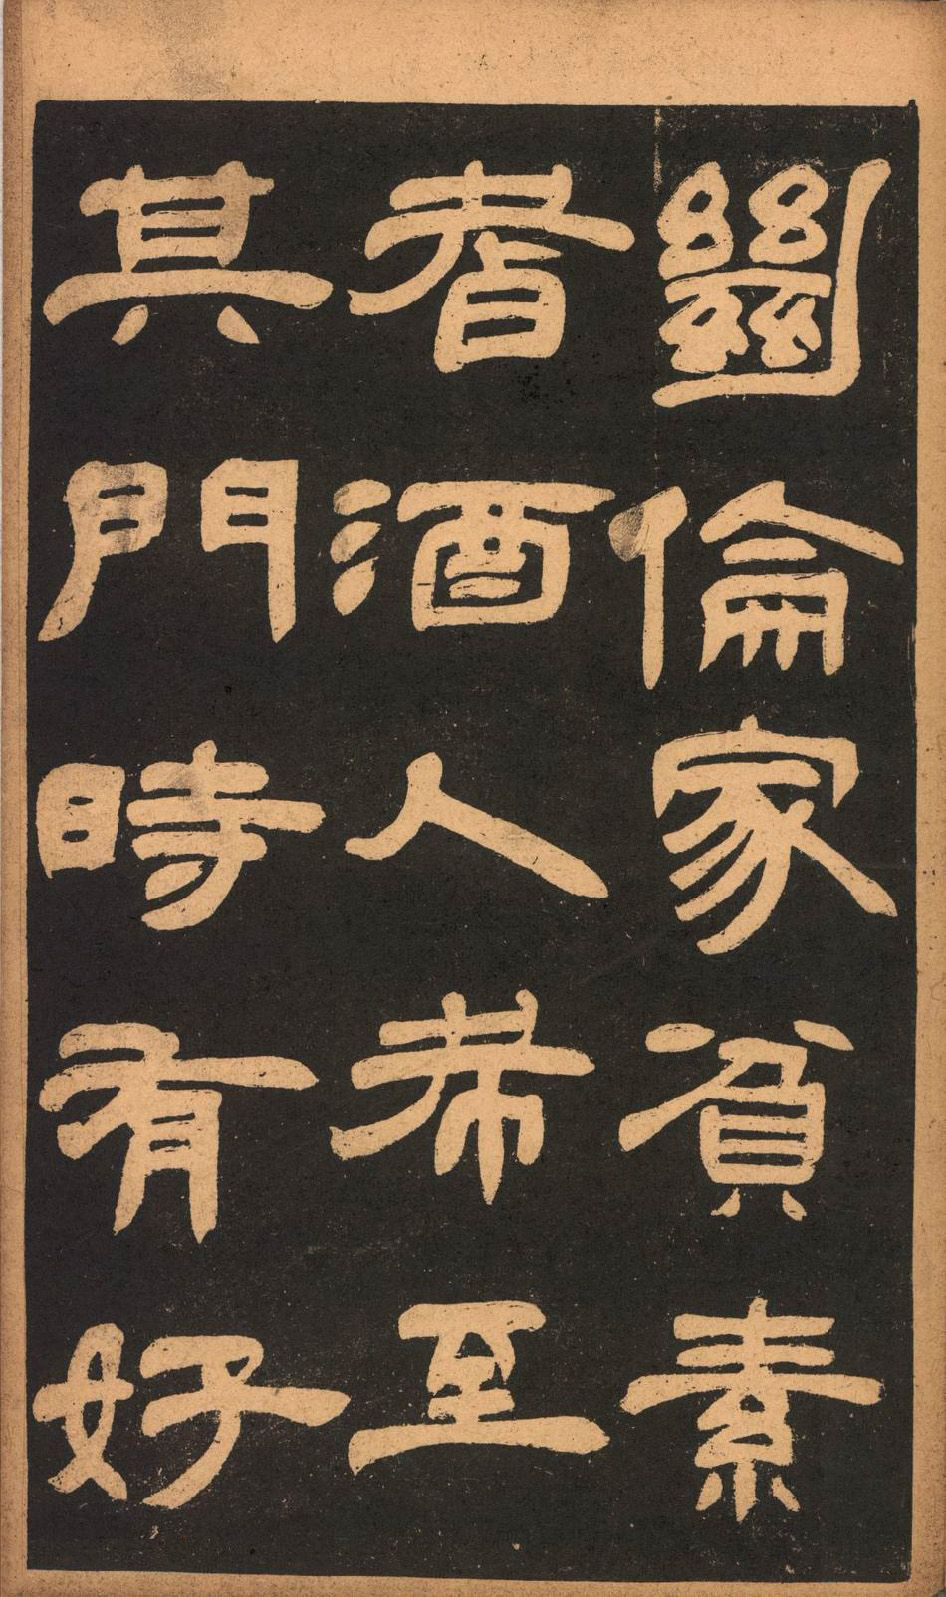 𢇍倫家貧素
耆酒人希至
其門時有好